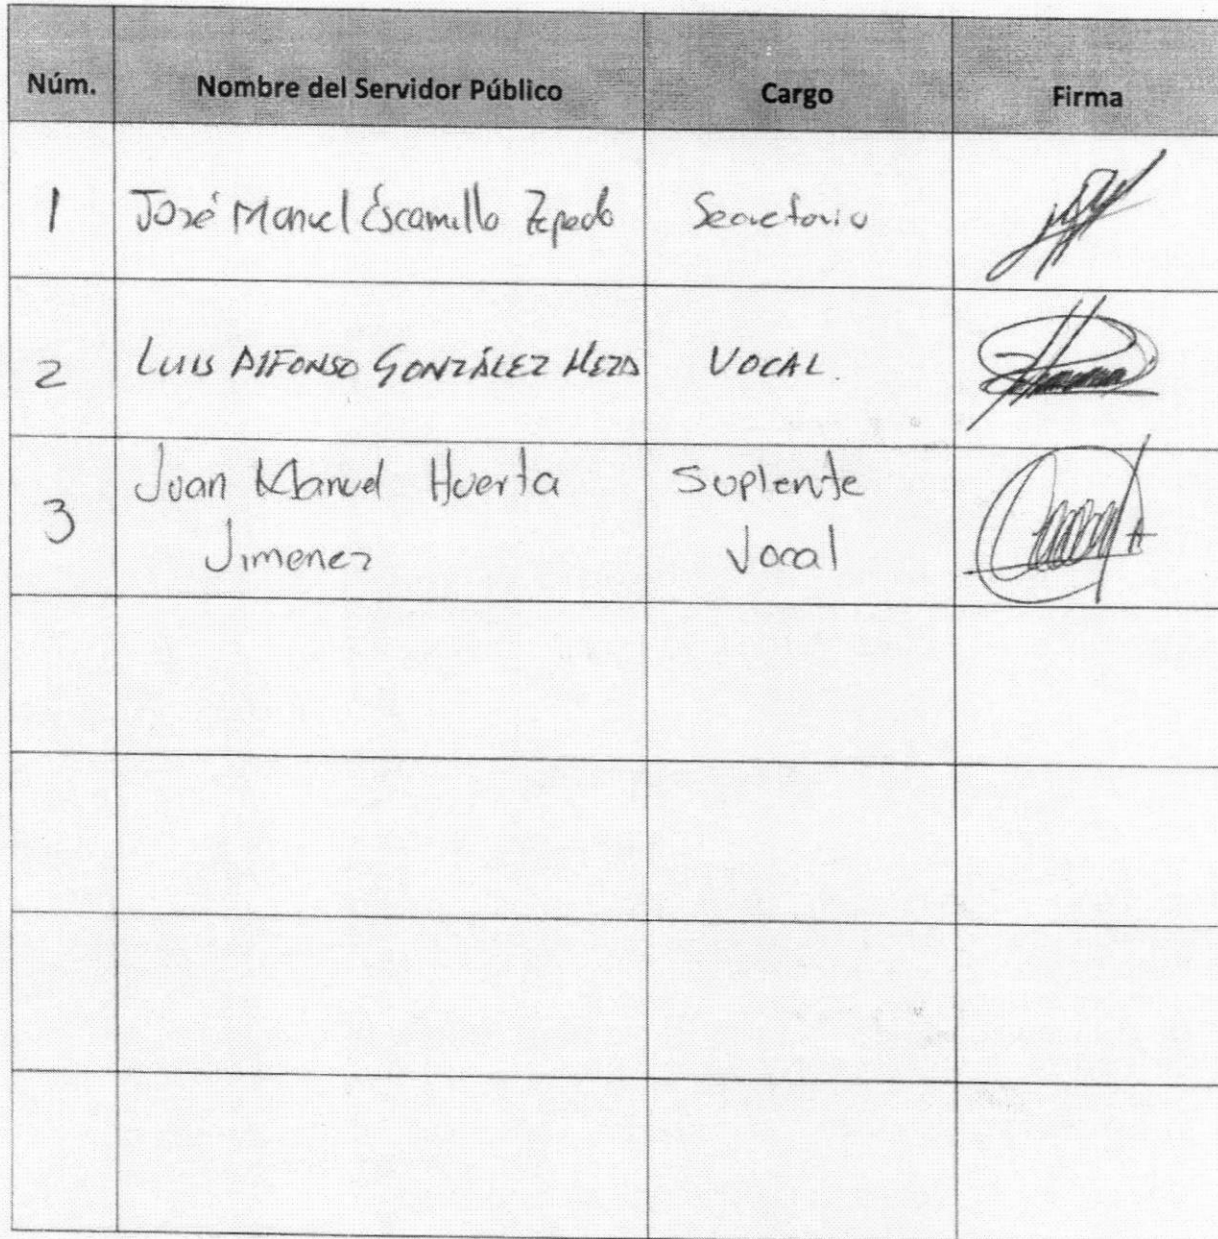 Núm. Nombre del Servidor Público Cargo Firma
1 José Manuel Escamilla Zepeda Secretario
2 LUIS AlFONSO GONZÁLEZ MEZA VOCAL.
3 Juan Manuel Huerta Suplente
Jimenez Vocal